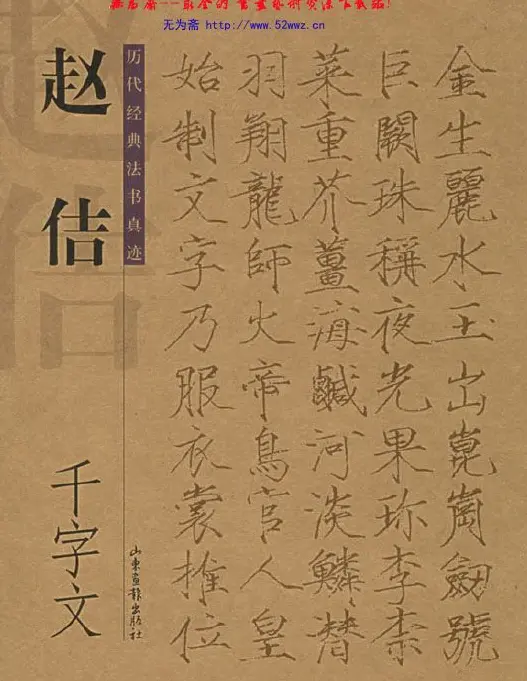 无为斋 http://www.52wwz.cn
金生麗水玉出崑崗劔號
巨闕珠稱夜光果珍李柰
菜重芥薑海鹹河淡鱗潛
羽翔龍師火帝鳥官人皇
始制文字乃服衣裳推位
历代经典法书真迹
赵佶
千字文
山东画报出版社